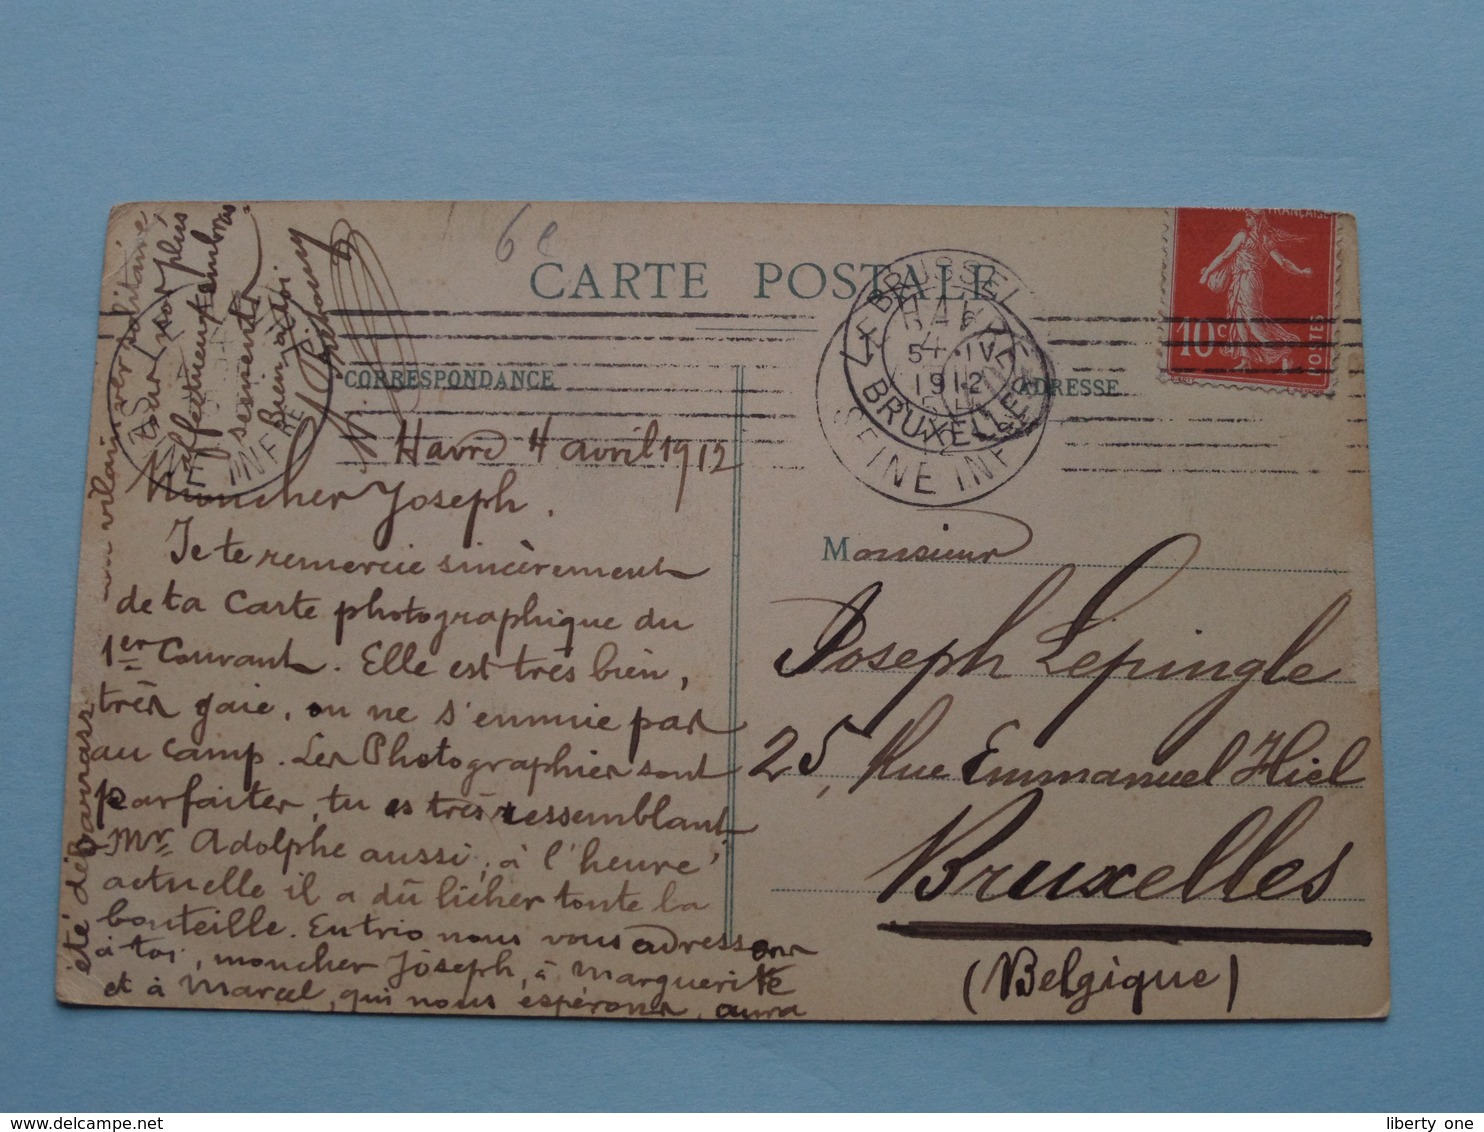 6e
CARTE POSTALE
CORRESPONDANCE
ADRESSE
FRANÇAISE
10c
POSTES
BRUSSEL
5 IV
1912
BRUXELLES
SEINE INF
INFRE
Havre 4 avril 1912
Moncher Joseph.
Je te remercie sincèrement
de ta Carte photographique du
1er Courant. Elle est très bien,
très gaie, on ne s'ennuie pas
au Camp. Les Photographies sont
parfaites, tu es très ressemblant
Mr. Adolphe aussi, à l'heure
actuelle il a dû licher toute la
bouteille. En trio nous vous adressons
à toi, moncher Joseph, à Marguerite
et à Marcel, qui nous espérons, aura
été débarrassé
son vilain ver solitaire,
nos plus
affectueux embras
sements
Bien à toi
Monsieur
Joseph Lepingle
25, Rue Emmanuel Hiel
Bruxelles
(Belgique)
liberty one